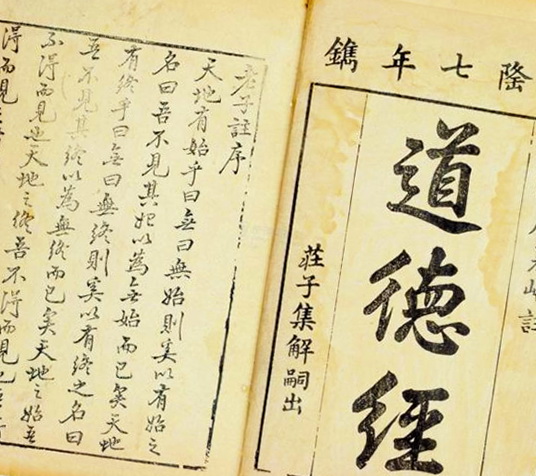 隆七年鐫
註
道德經
莊子集解嗣出
老子註序
天地有始乎曰無曰無始則奚以有始之
名曰吾不見其始以為無始而已矣天地
有終乎曰無曰無終則奚以有終之名曰
吾不見其終以為無終而已矣天地之始吾
不得而見也天地之終吾不得而見也
得而見